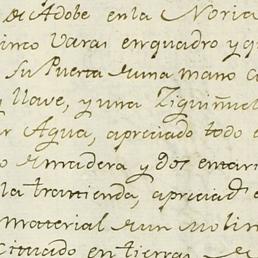 de Adobe en la Noria
cinco Varas en quadro y qu
su Puerta de una mano c
y llave, y una Ziguiñuel
r Agua, apreciado todo e
o de madera y dos entar
la trastienda, apreciad e
material de un molin
cituado en tierras de